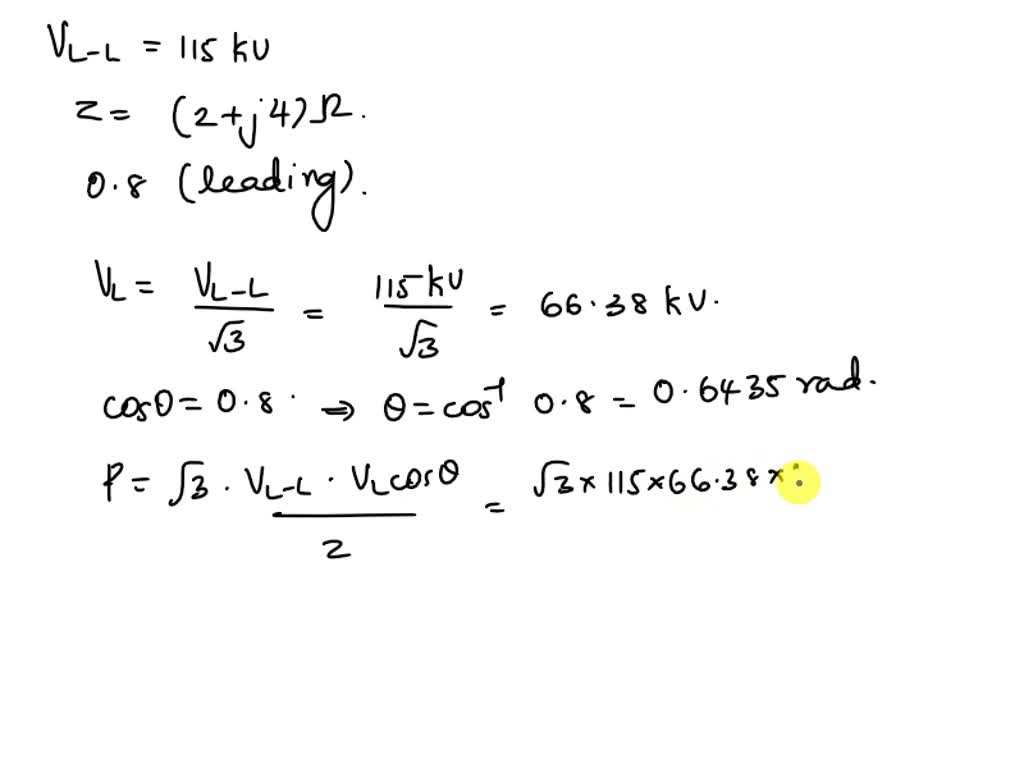 V_{L-L} = 115 kV
Z = (2+j4)Ω.
0.8 (leading).
V_L = \frac{V_{L-L}}{√3} = \frac{115 kV}{√3} = 66.38 kV.
cosθ = 0.8 ⇒ θ = cos^{-1} 0.8 = 0.6435 rad.
P = √3 . \frac{V_{L-L} . V_L cosθ}{Z} = √3 × 115 × 66.38 ×